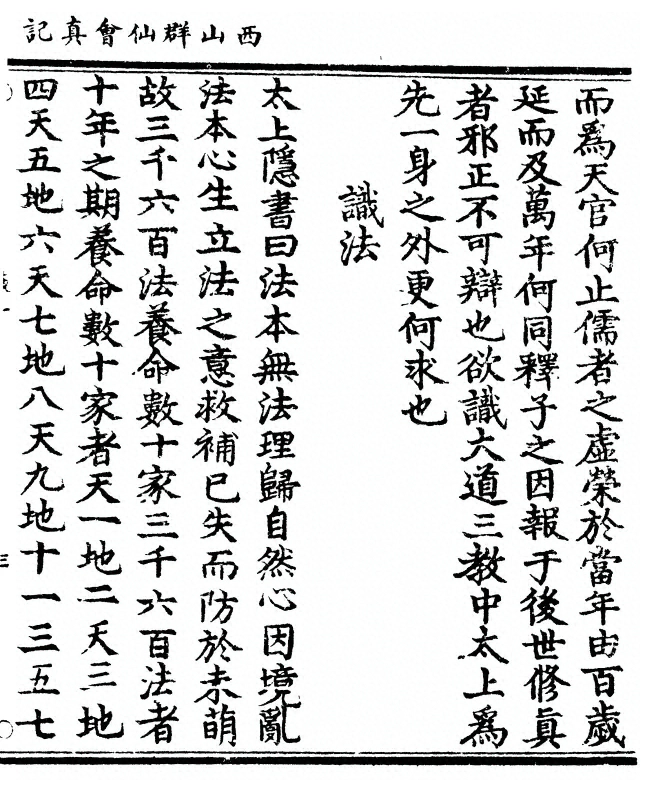 西山群仙會真記
而爲天官何止儒者之虛榮於當年由百歲
延而及萬年何同釋子之因報于後世修眞
者邪正不可辯也欲識六道三教中太上爲
先一身之外更何求也
識法
太上隱書曰法本無法理歸自然心因境亂
法本心生立法之意救補已失而防於未萌
故三千六百法養命數十家三千六百法者
十年之期養命數十家者天一地二天三地
四天五地六天七地八天九地十一三五七
三